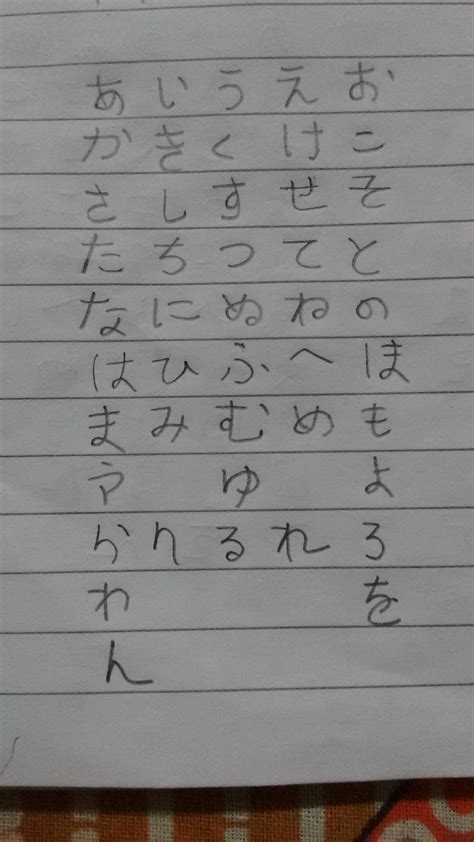 あ い う え お
か き く け こ
さ し す せ そ
た ち つ て と
な に ぬ ね の
は ひ ふ へ ほ
ま み む め も
や ゆ よ
ら り る れ ろ
わ を
ん